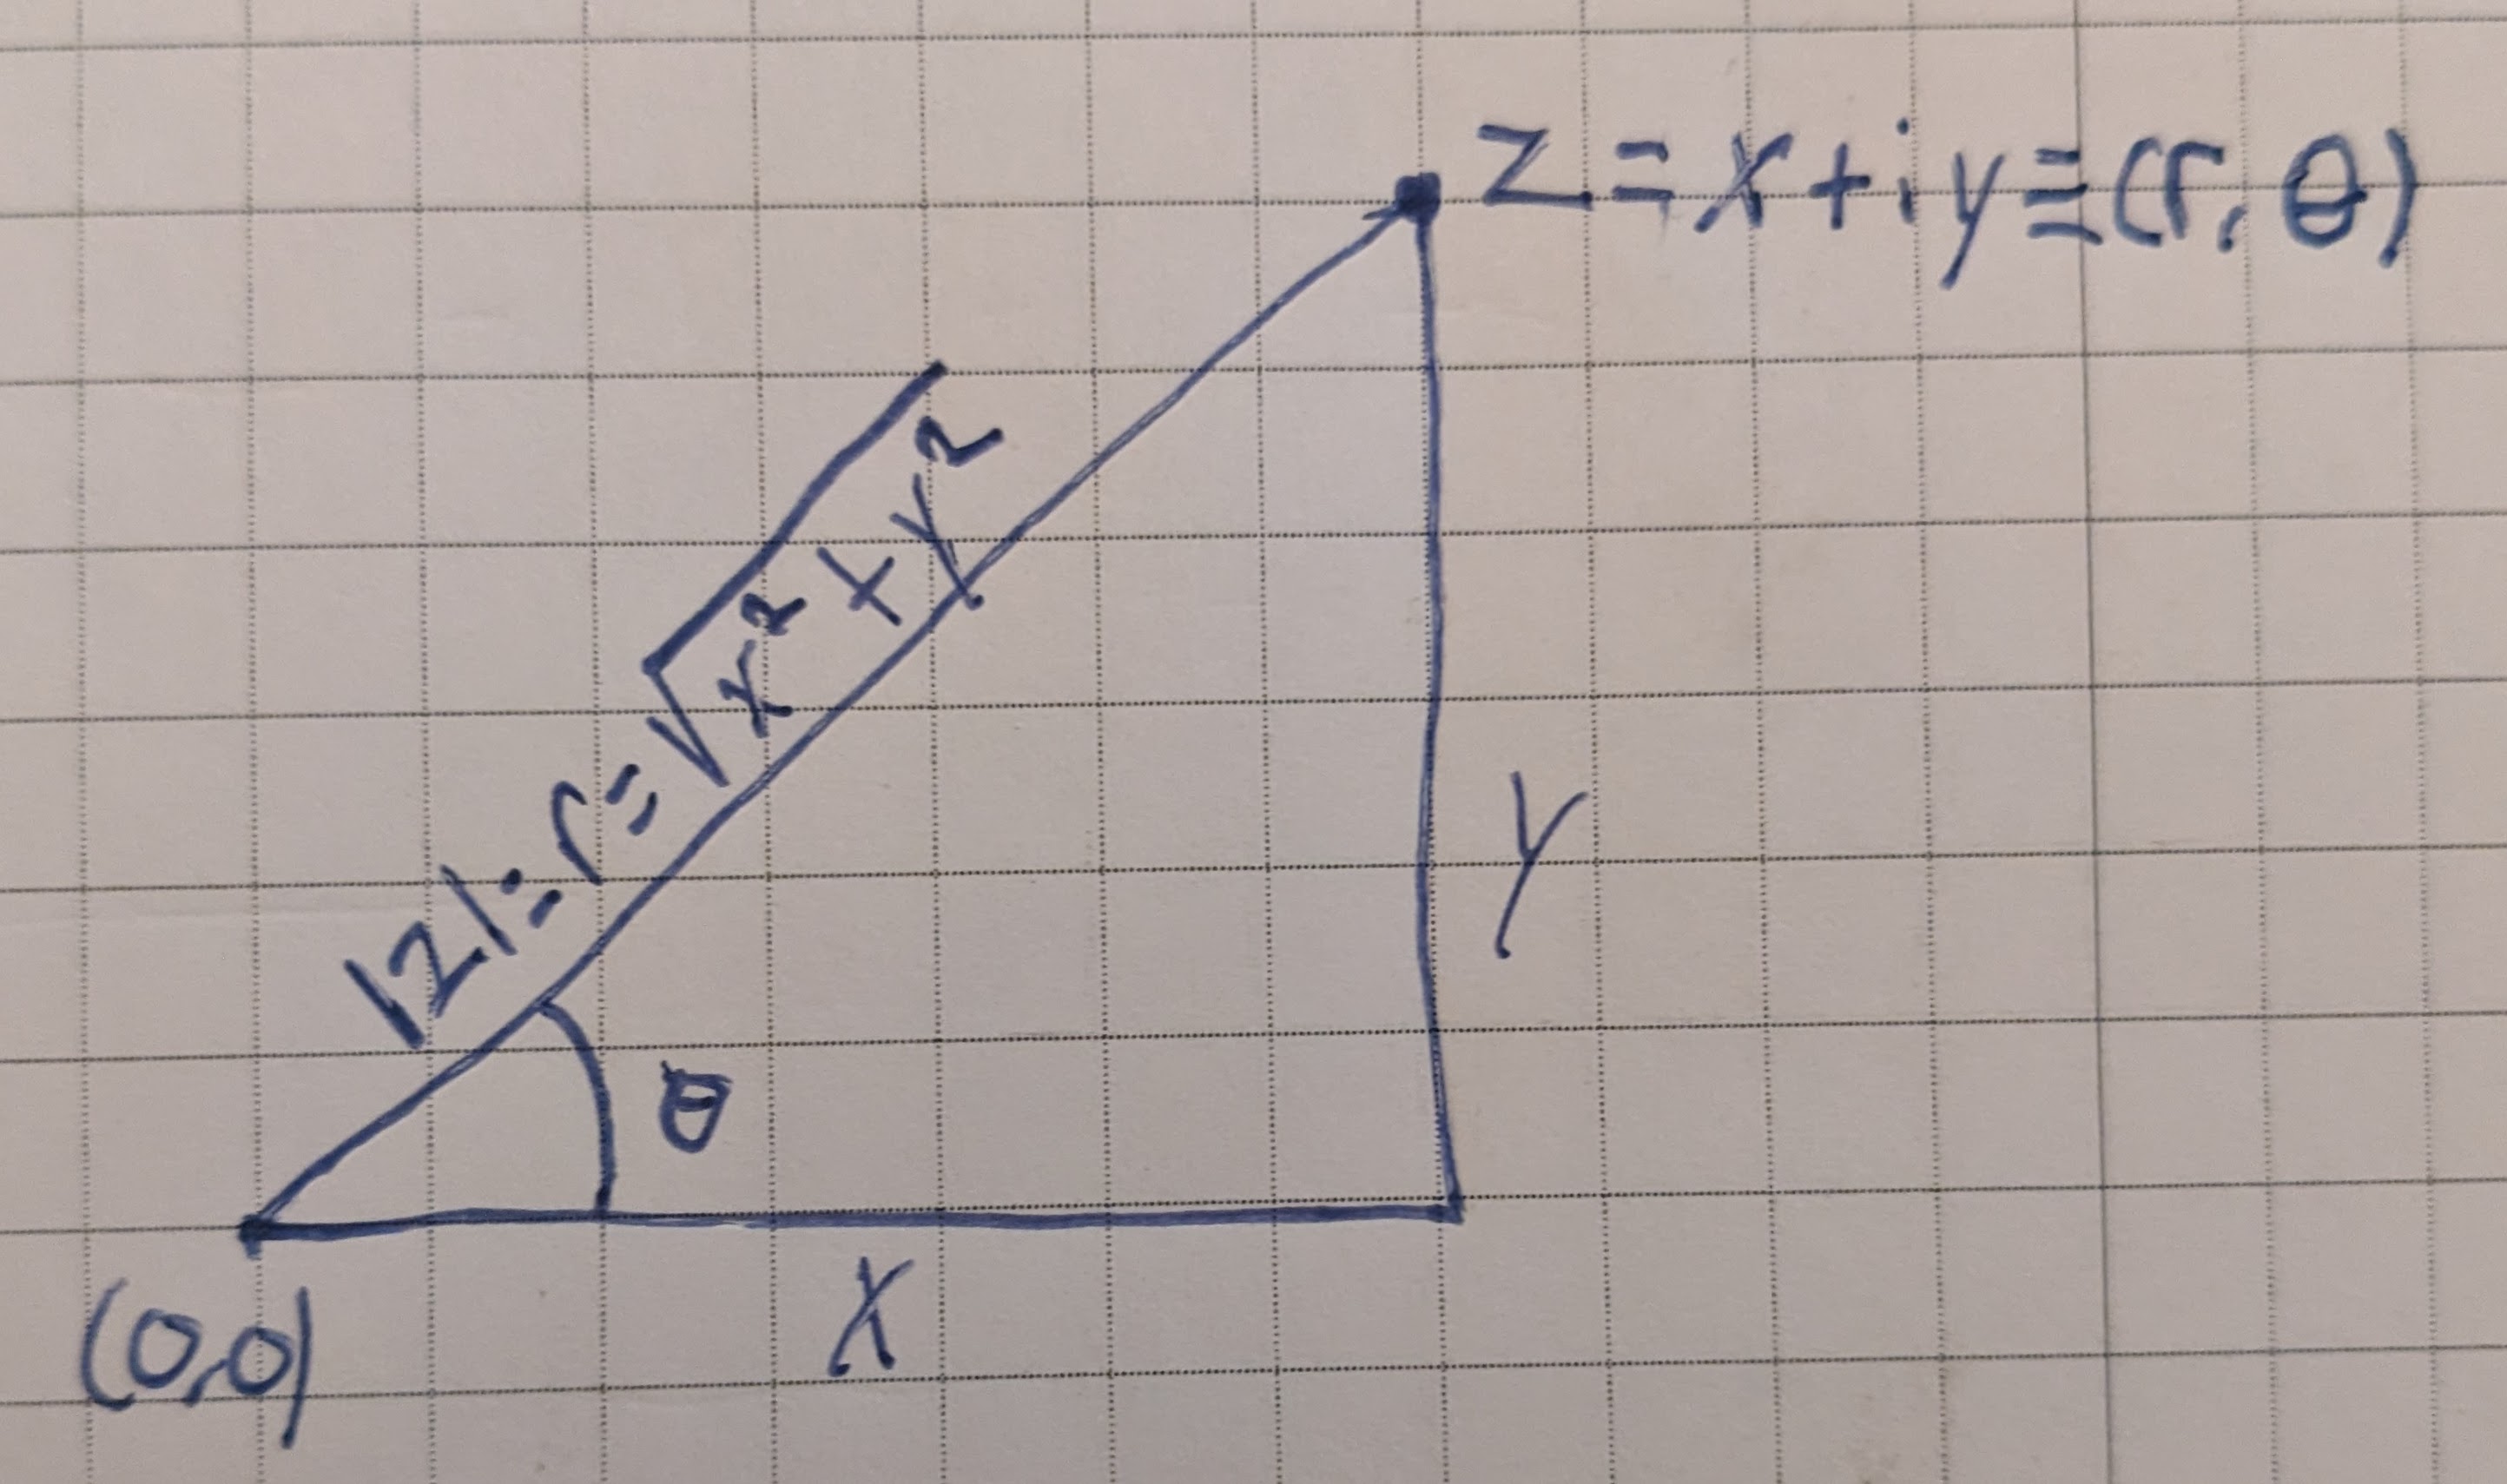 z = x + i y ≡ (r, θ)
|z| = r = √x² + y²
y
θ
x
(0,0)